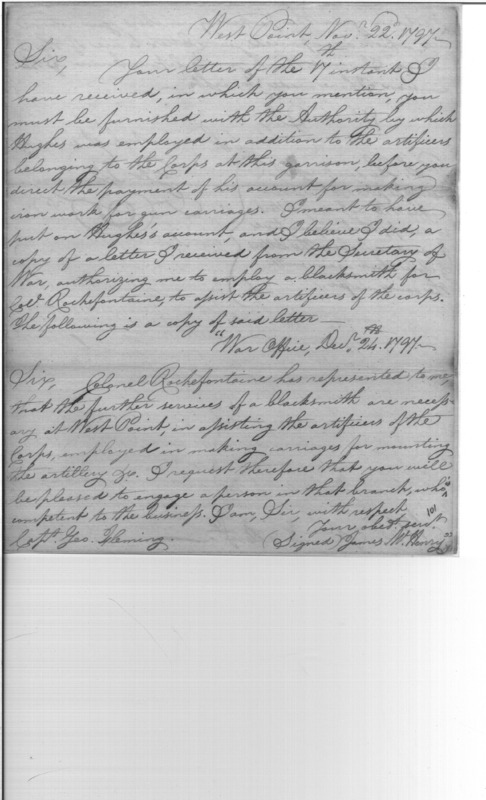 West Point, Novr. 22d. 1797
Sir,
Your letter of the 17th instant I
have received, in which you mention, you
must be furnished with the Authority by which
Hughes was employed in addition to the artificers
belonging to the Corps at this garrison, before you
direct the payment of his account for making
iron work for gun carriages. I meant to have
put on Hughes's account, and I believe I did, a
copy of a letter I received from the Secretary of
War, authorizing me to employ a blacksmith for
Colo. Rochefontaine, to assist the artificers of the corps.
The following is a copy of said letter
"War Office, Decr. 24th. 1797
Sir, Colonel Rochefontaine has represented to me,
that the further services of a blacksmith are necess-
ary at West Point, in assisting the artificers of the
Corps, employed in making carriages for mounting
the artillery &c. I request therefore that you will
be pleased to engage a person in that branch, who is
competent to the business. I am, Sir, with respect
Your obedt. servt.
Capt. Geo. Fleming. Signed James McHenry"